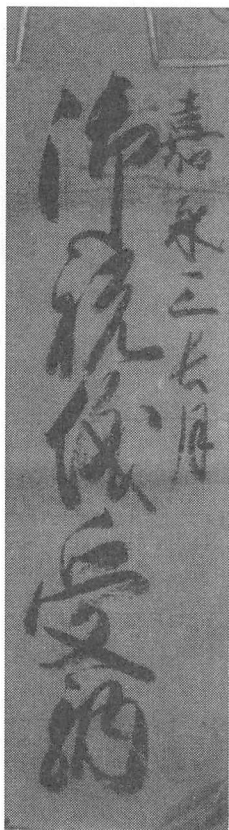 嘉永三長月
御祝儀受納